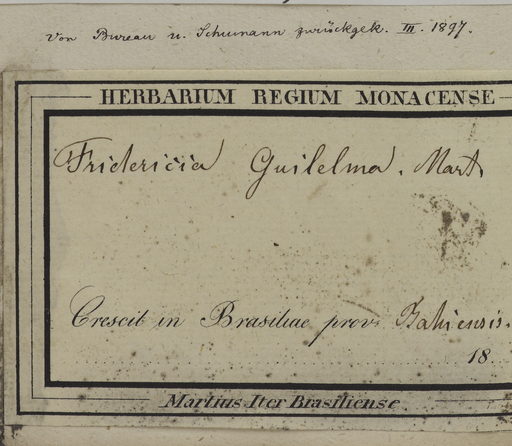 Von Bureau u. Schumann zurückgek. III. 1897.
HERBARIUM REGIUM MONACENSE
Fridericia Guilelma. Mart
Crescit in Brasiliae prov. Bahiensis.
18
Martius Iter Brasiliense